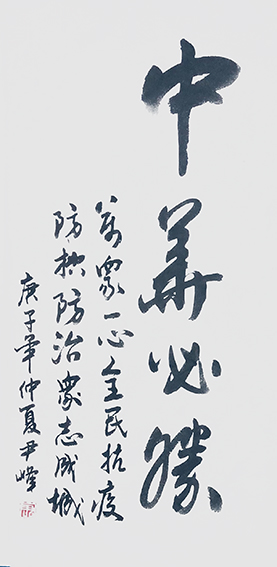 中華必勝
萬衆一心全民抗疫
防控防治衆志成城
庚子年仲夏尹峰